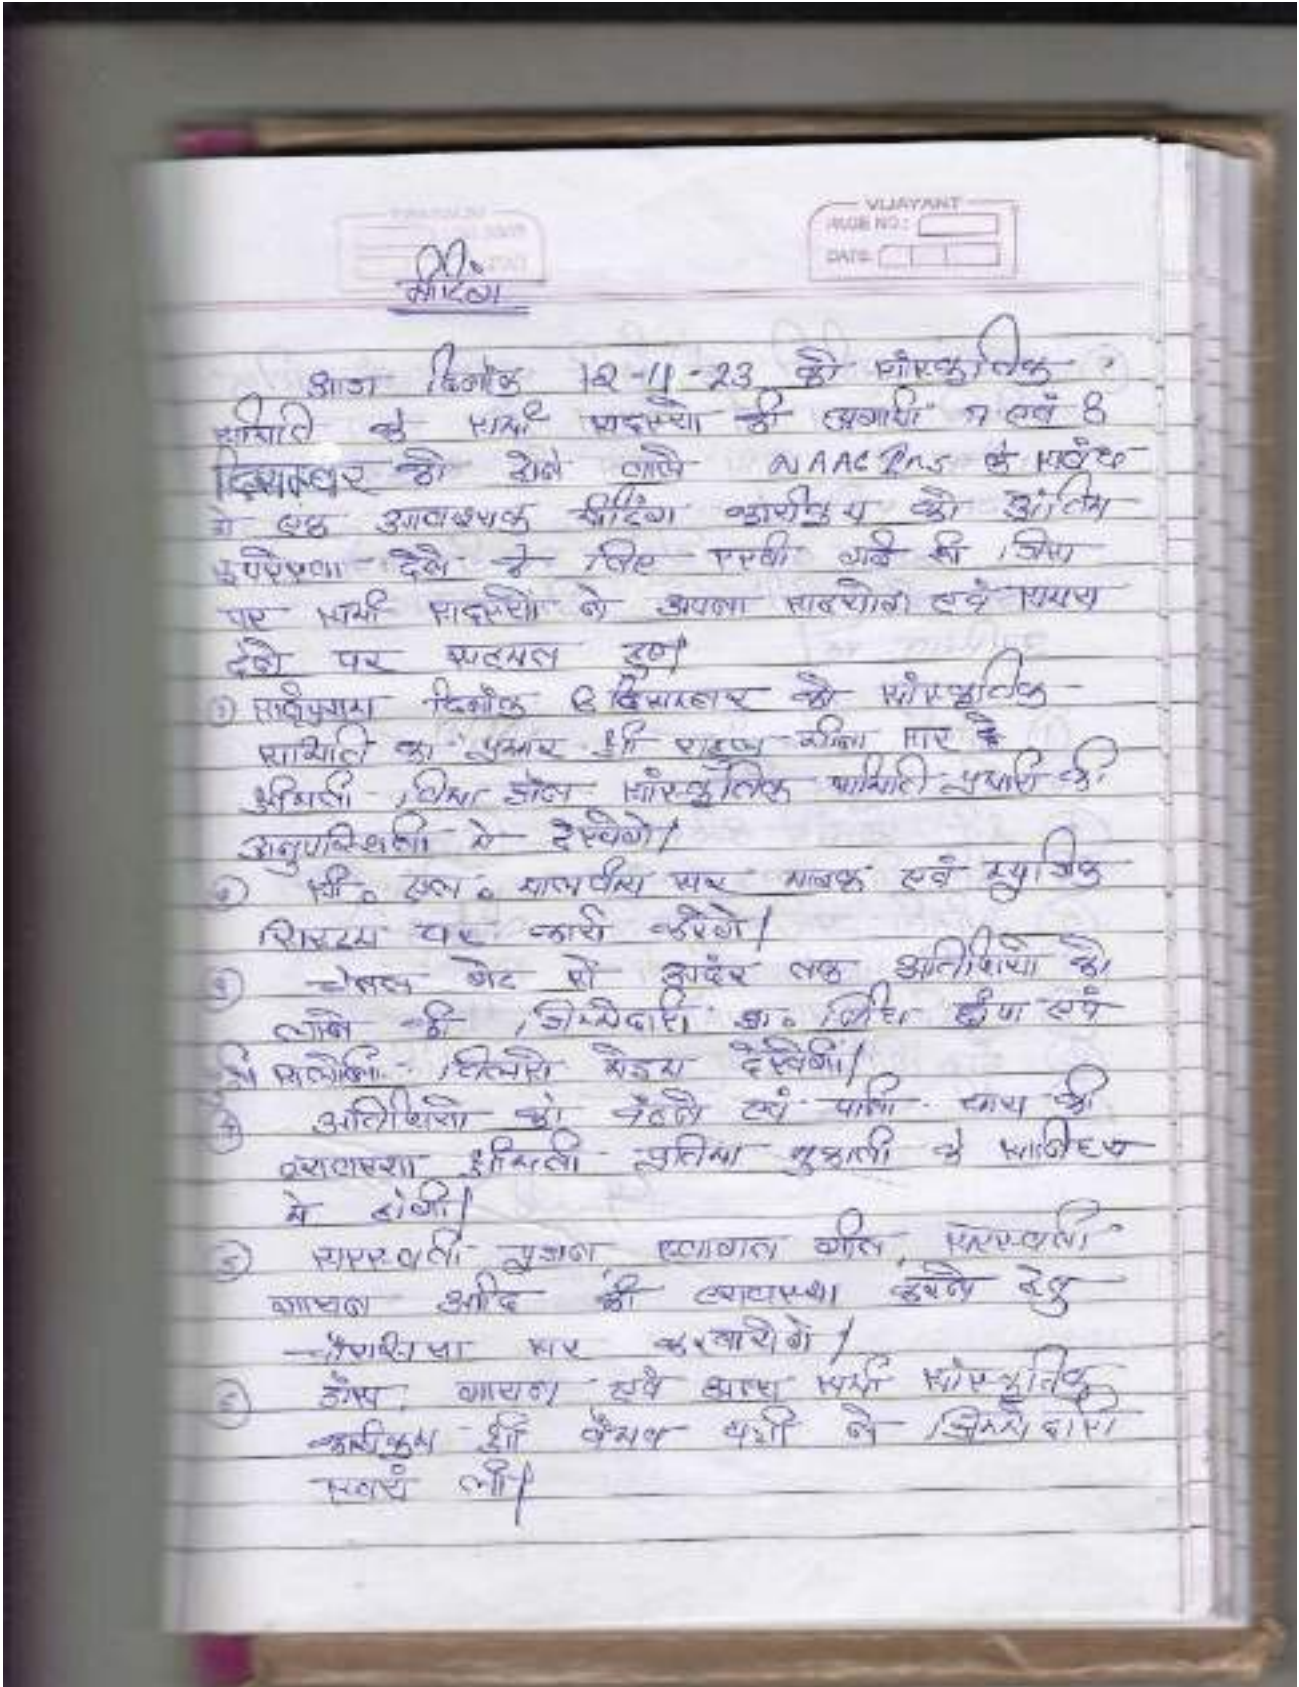 VIJAYANT
PAGE NO:
DATE
मीटिंग
आज दिनांक 12-11-23 को सांस्कृतिक
समिति के सभी सदस्यो की आगामी 7 एवं 8
दिसम्बर को होने वाले NAAC के संबंध
मे एक आवश्यक मीटिंग कार्यक्रम को अंतिम
रूपरेखा देने के लिए रखी गई थी जिस
पर सभी सदस्यो ने अपना सहयोग एवं समय
देने पर सहमत हुए।
① सर्वप्रथम दिनांक दिसम्बर को सांस्कृतिक
समिति का प्रभार श्री मीना सर
श्रीमती सांस्कृतिक समिति प्रभारी की
अनुपस्थिती मे देखेगे।
② एल. मालवीय सर माइक एवं म्युजिक
सिस्टम पर कार्य करेगे।
③ चेनल गेट से अदंर तक अतिथियो को
लाने की जिम्मेदारी डॉ. एवं
मेडम देखेगी।
④ अतिथियो को बैठने एवं पानी चाय की
व्यवस्था श्रीमती मुजाल्दे के सानिध्य
मे होगी।
⑤ सरस्वती पुजन, स्वागत गीत, सरस्वती
गायन आदि की व्यवस्था करने हेतु
सर करवायेगे।
⑥ डांस, गायन एवं अन्य सभी सांस्कृतिक
कार्यक्रम श्री वैभव ने जिम्मेदारी
स्वयं ली।